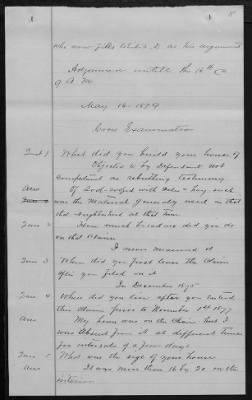 who now files Exhibit D as his argument
Adjourned until the 16th @
9 A. M.
May 16 - 1879
Cross Examination
Int 1 What did you build your house of
Objected to by Defendant not
competent as rebutting testimony
Ans Of Sod-roofed with Poles & hay such
was the Material generally used in that
that Neighborhood at that time
Int 2 How much breaking did you do
on that Claim
I never measured it
Int 3 When did you first leave the Claim
after you filed on it
In December 1875
Int 4 Where did you live after you entered
this Claim prior to November 1st 1877
Ans My home was on the Claim but I
was Absent from it at different times
for intervals of a few days
Int 5 What was the size of your house
Ans It was more than 16 by 20 on the
interior